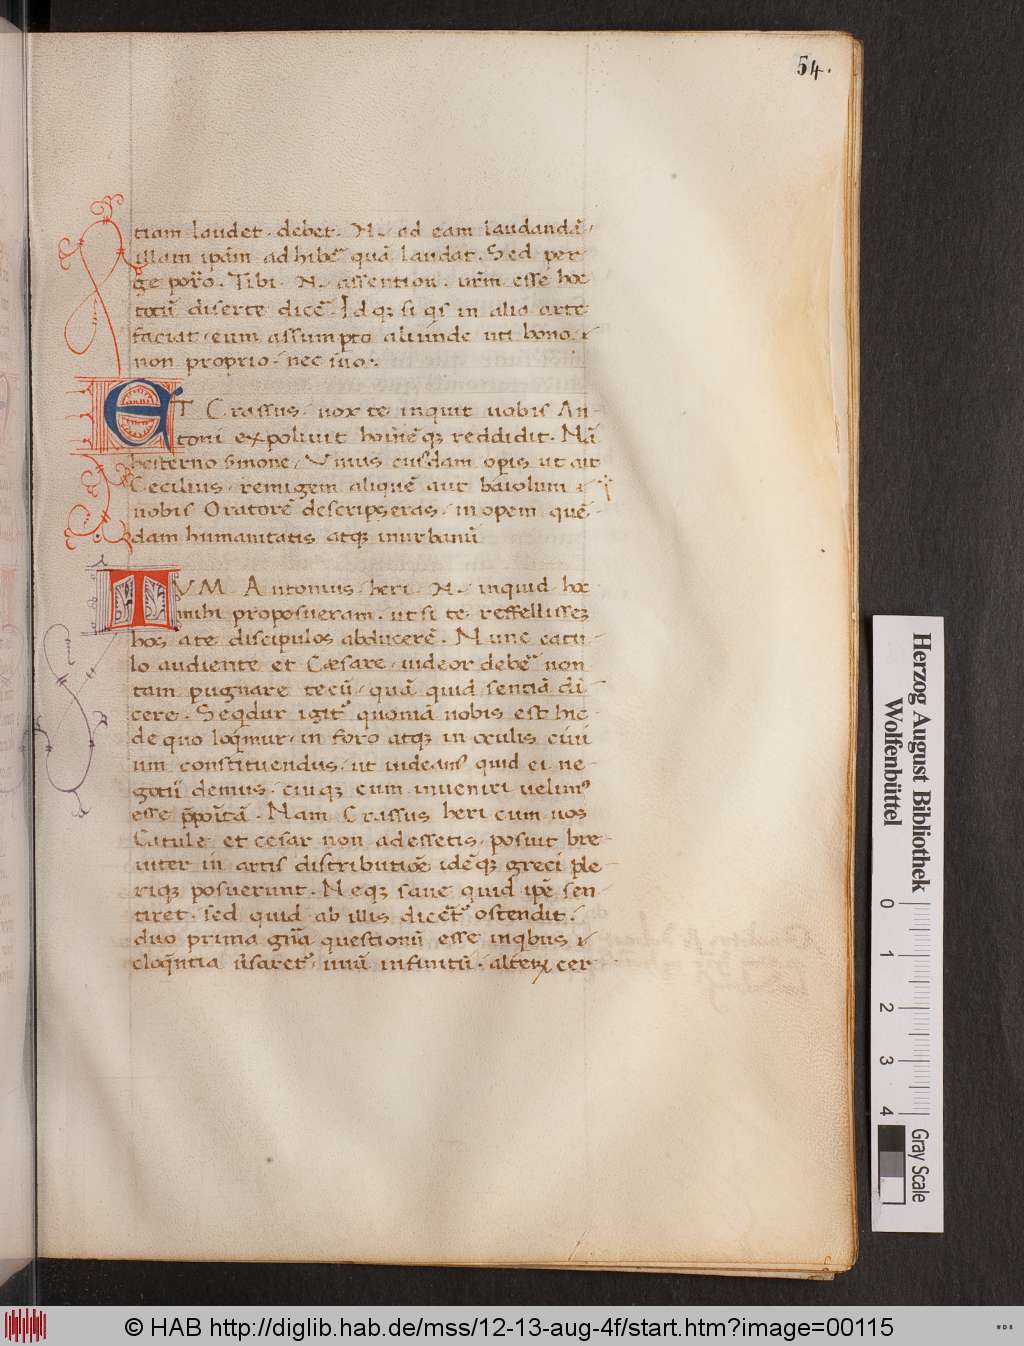 54.
tiam laudet. debet. N. ad eam laudandā,
illam ipām adhibē quā laudat. Sed per
ge porro. Tibi. N. assentior. urm esse hoc
totū diserte dicē. Id qȝ si qs in alia arte
faciat, eum assumpto aliunde uti bono,
non proprio, nec suo.
ET Crassus, nox te inquit nobis An-
toni expoliuit hoīneqȝ reddidit. Nā
hesterno smone, Vnius cuiusdam opis ut ait
Cecilius, remigem aliquē aut baiolum
nobis Oratorē descripseras, inopem quē-
dam humanitatis atqȝ inurbanū
TVM Antonius, heri. N. inquid hoc
mihi proposueram, ut si te reffellissē
hos a te discipulos abducerē. Nunc catu-
lo audiente et Cæsare, uideor debē non
tam pugnare tecū, quā quid sentiā di
cere. Seqdur igit quoniā nobis est hic
de quo loqmur, in foro atqȝ in oculis ciui
um constituendus, ut uideamus quid ei ne-
gotii demus, cuiqȝ eum inueniri uelimus
esse ppoitā. Nam Crassus heri cum uos
Catule et cesar non adessetis, posuit bre
uiter in artis distributiōe idēqȝ greci ple
riqȝ posuerunt. Neqȝ sane quid ipē sen
tiret, sed quid ab illis dicēt ostendit,
duo prima gna questionū esse inqbus
eloqntia usaret, unū infinitū, alterꝝ cer
Herzog August Bibliothek
Wolfenbüttel
0 1 2 3 4
Gray Scale
© HAB http://diglib.hab.de/mss/12-13-aug-4f/start.htm?image=00115